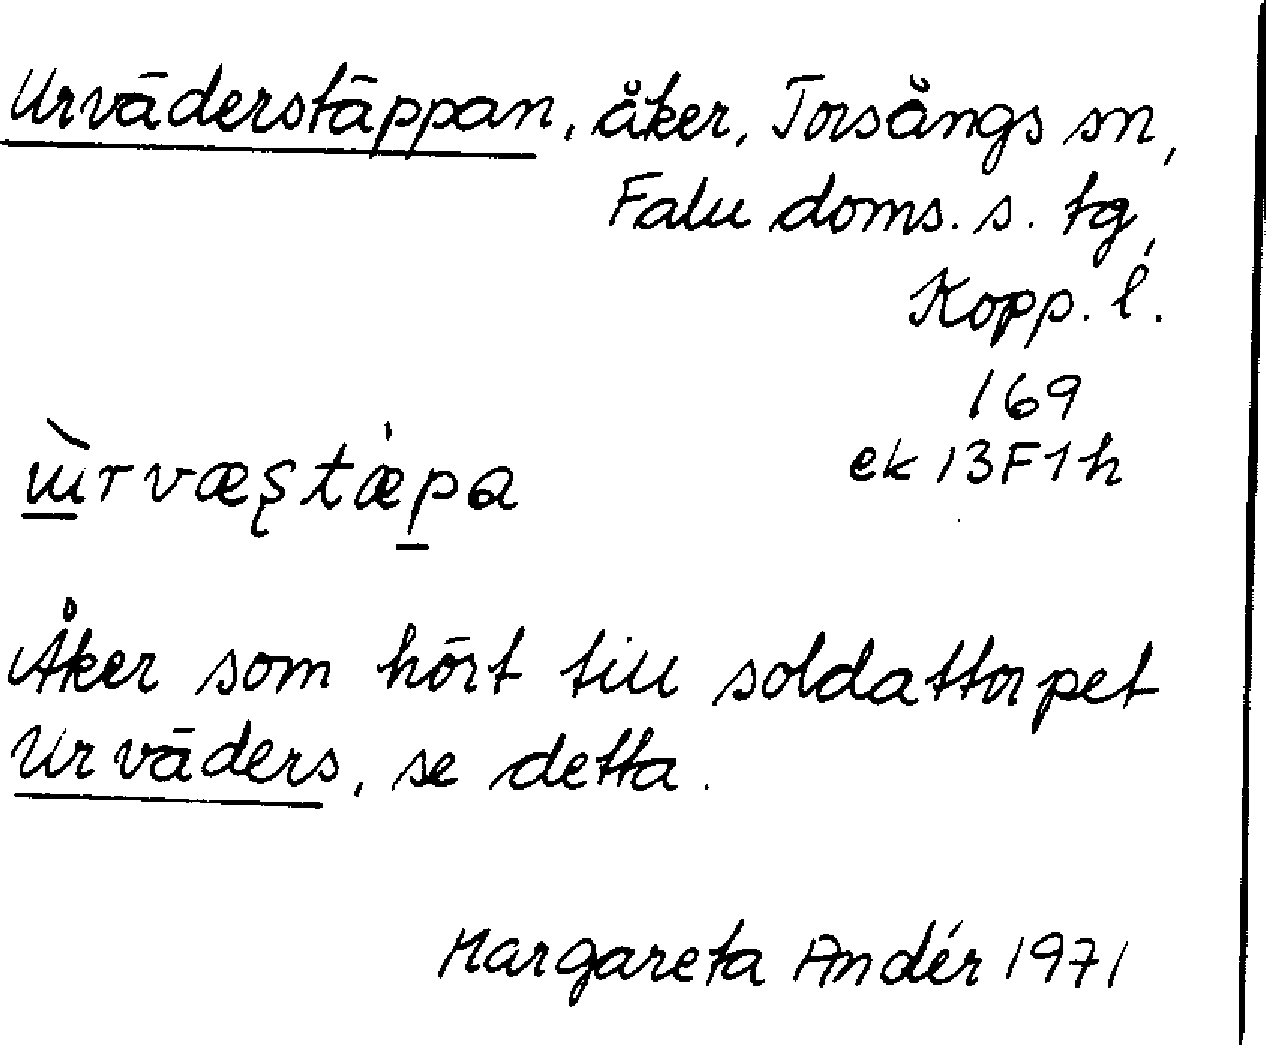 Urväderstäppan, åker, Torsångs sn,
Falu doms. s. tg,
Kopp. l.
169
ek 13F1h
Åker som hört till soldattorpet
Urväders, se detta.
Margareta Andér 1971